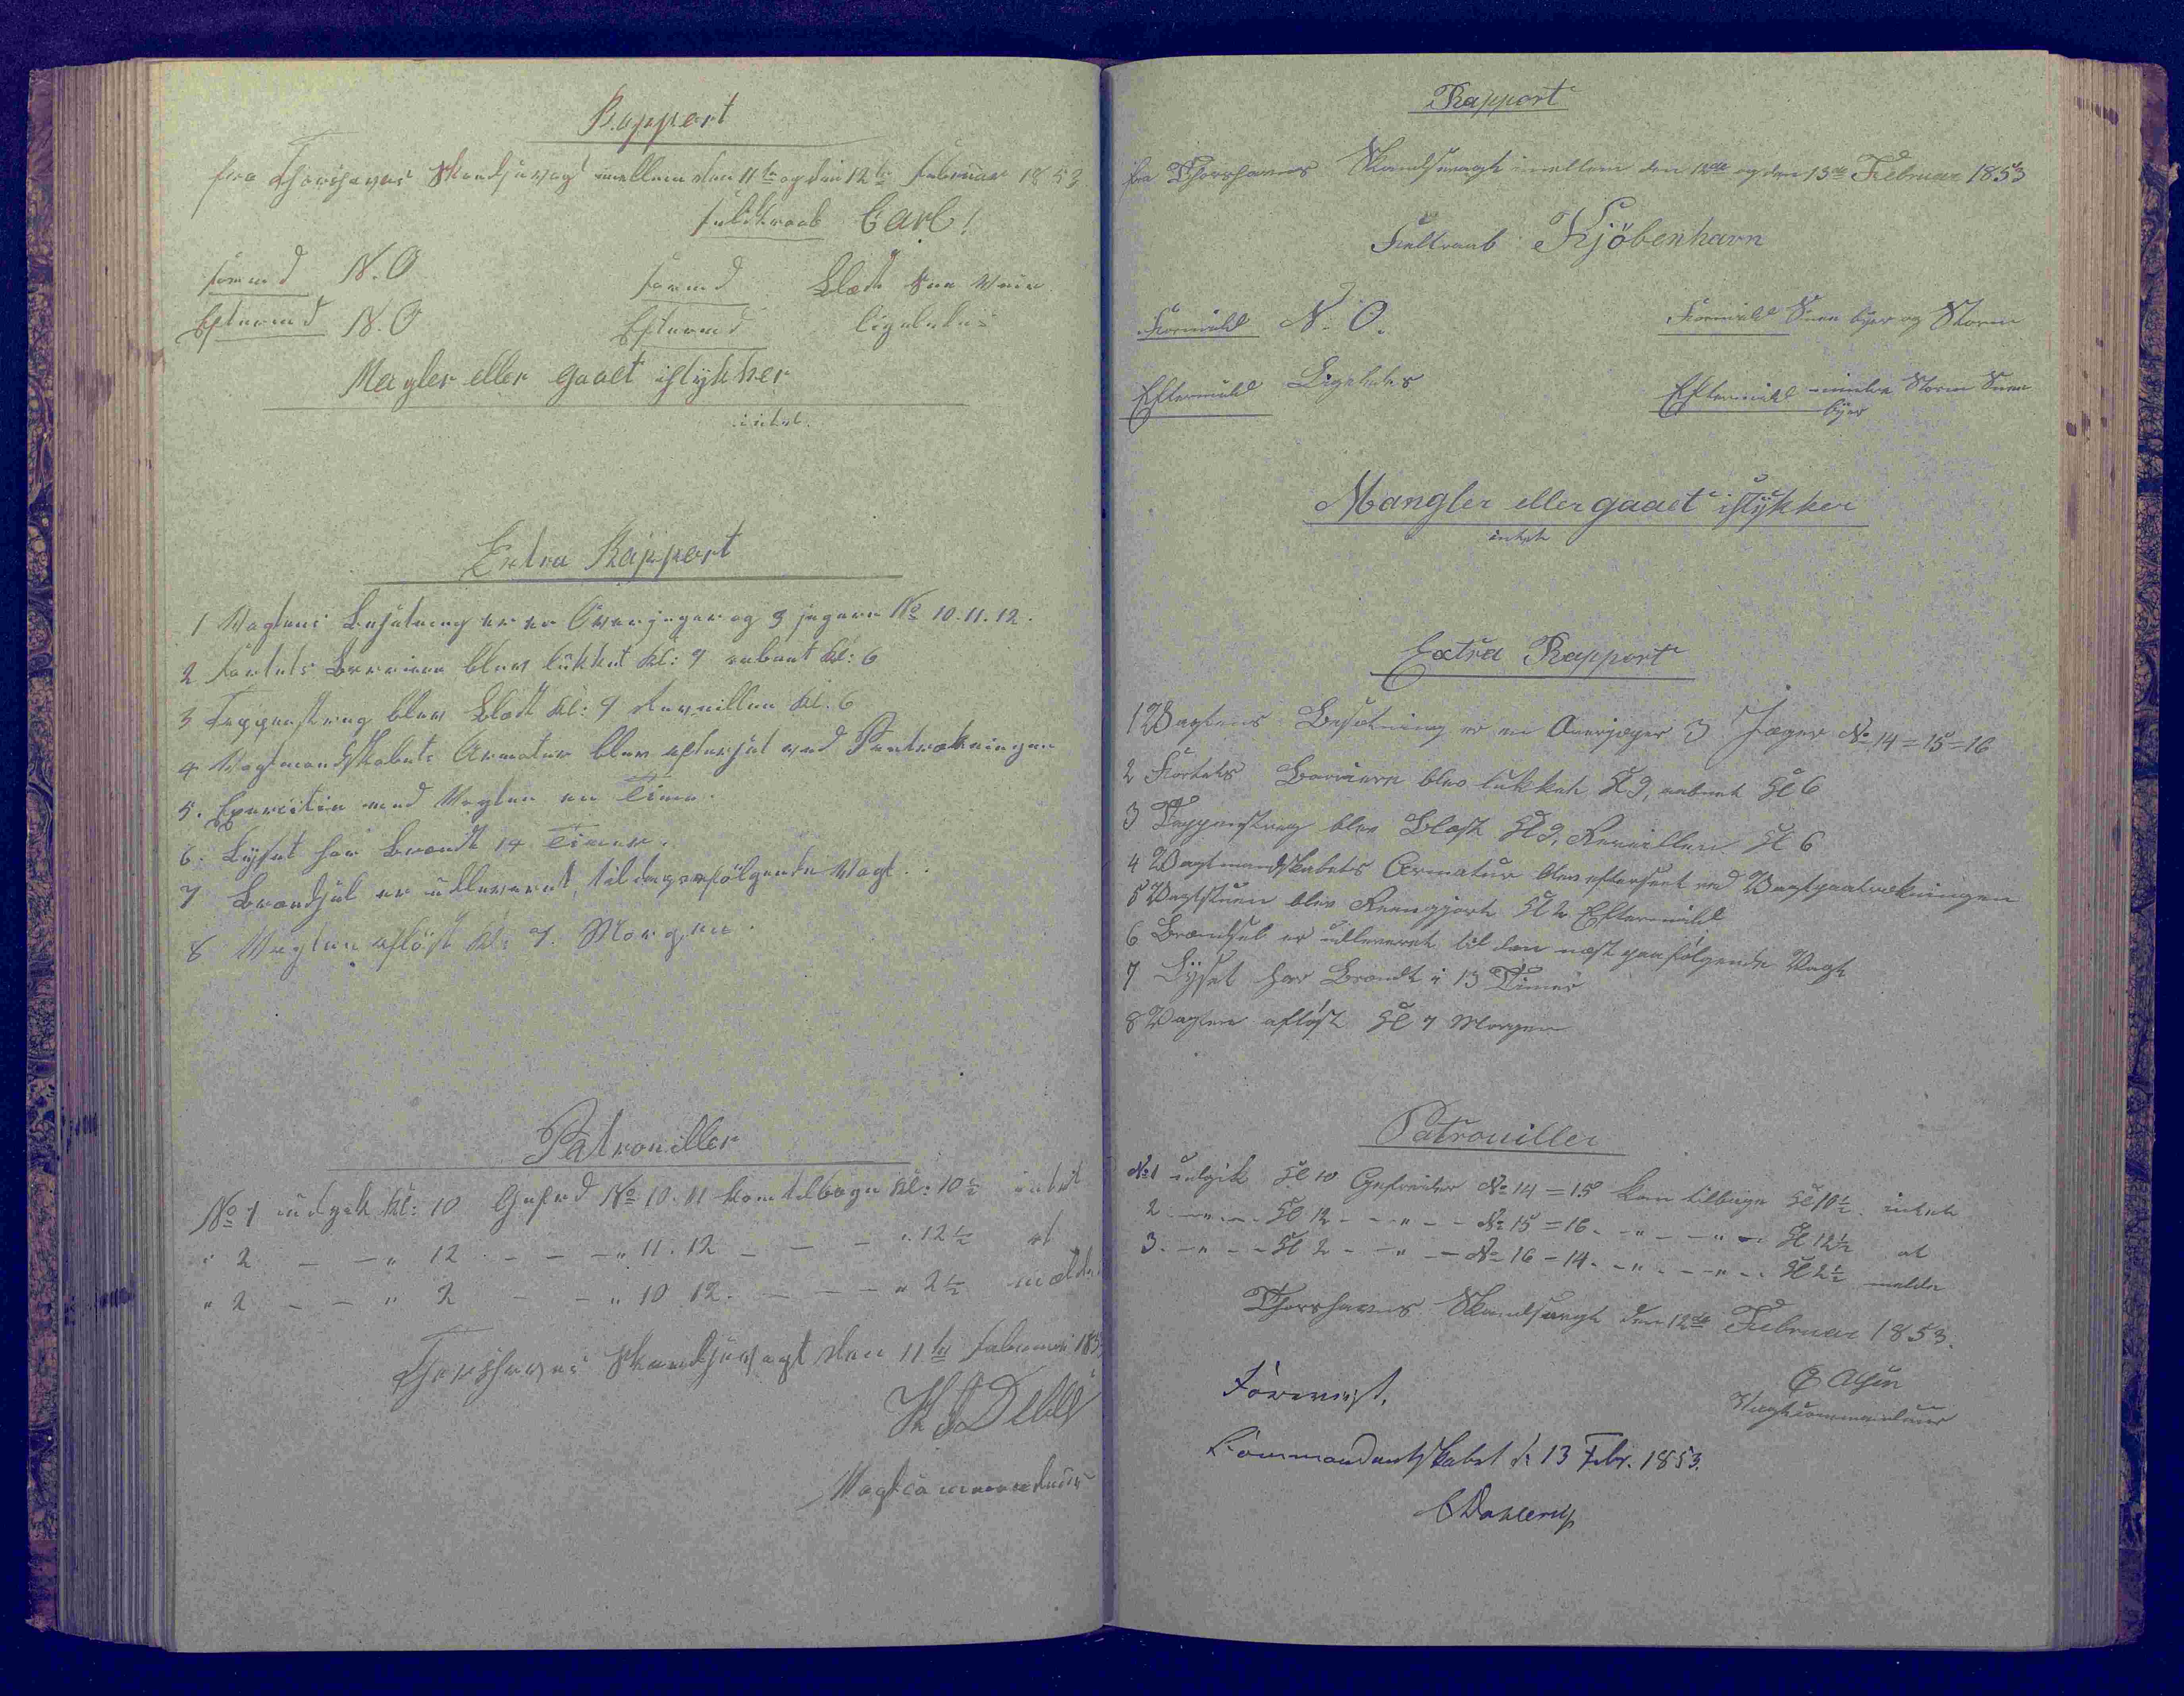 Rapport
fra Thorshavns Skandsevagt imellem den 11te og den 12te Februar 1853
Feltraab Carl!
Formd N.O Formd Blæst Snee
Eftermd N.O Eftermd ligeledes
Magler eller gaaet istykker
intet.
Extra Rapport
1 Vagtens Besætning er en Overjæger og 3 jægere No 10. 11. 12.
2 Fortets Barriere blev lükket Kl: 9 aabnet Kl: 6
3 Tappenstreg blev Blæst Kl: 9 Reveillen Kl. 6
4 Vagtmandskabets Armatur blev efterset ved Paatrækningen
5. Exercitie med Vagten en Time.
6. Lyset har Brændt 14 Timer.
7 Brændsel er udleveret til den paafölgende Vagt.
8 Vagten aflöst Kl: 9. Morgen.
Patrouiller
No 1 udgik Kl: 10 Gefred No 10. 11 kom tilbage Kl: 10½ intet
" 2 — — " 12 — — — " 11. 12 — — — " 12½ at
" 2 — — " 2 — — " 10 12. — — — " 2½ melde
Thorshavns Skandsevagt den 11te Februar 1853
Vagtcommandeur
Rapport
fra Thorshavns Skandsevagt imellem den 12te og den 13de Februar 1853
Feltraab Kjöbenhavn
Formidd N. O. Formidd Snee byer og Storm
Eftermidd Ligeledes Eftermidd mindre Storm Snee
byer
Mangler eller gaaet istykker
intet
Extra Rapport
1 Vagtens Besætning er en Overjæger 3 Jæger No 14 = 15 = 16
2 Fortets Barriere blev lukket Kl 9, aabnet Kl 6
3 Tappenstreg blev Blæst Kl 9, Reveillen Kl 6
4 Vagtmandskabets Armatur blev efterseet ved Vagtpaatrækningen
5 Vagtstuen blev Reengjort Kl 2 Eftermidd
6 Brændsel er udleveret til den næst paafølgende Vagt
7 Lyset har Brændt i 13 Timer
8 Vagten aflöst Kl 9 Morgen
Patrouiller
No 1 udgik Kl 10 Gefreider No 14 = 15 kom tilbage Kl 10½ intet
2 — " — Kl 12 — — " — — No 15 = 16 — " — — " — Kl 12½ at
3. — " — Kl 2 — — " — — No 16 – 14. — " — — " — Kl 2½ melde
Thorshavns Skandsevagt den 12te Februar 1853.
Vagtcommandeur
Forevist.
Commandantskabet d: 13 Febr. 1853.
CDahlerup